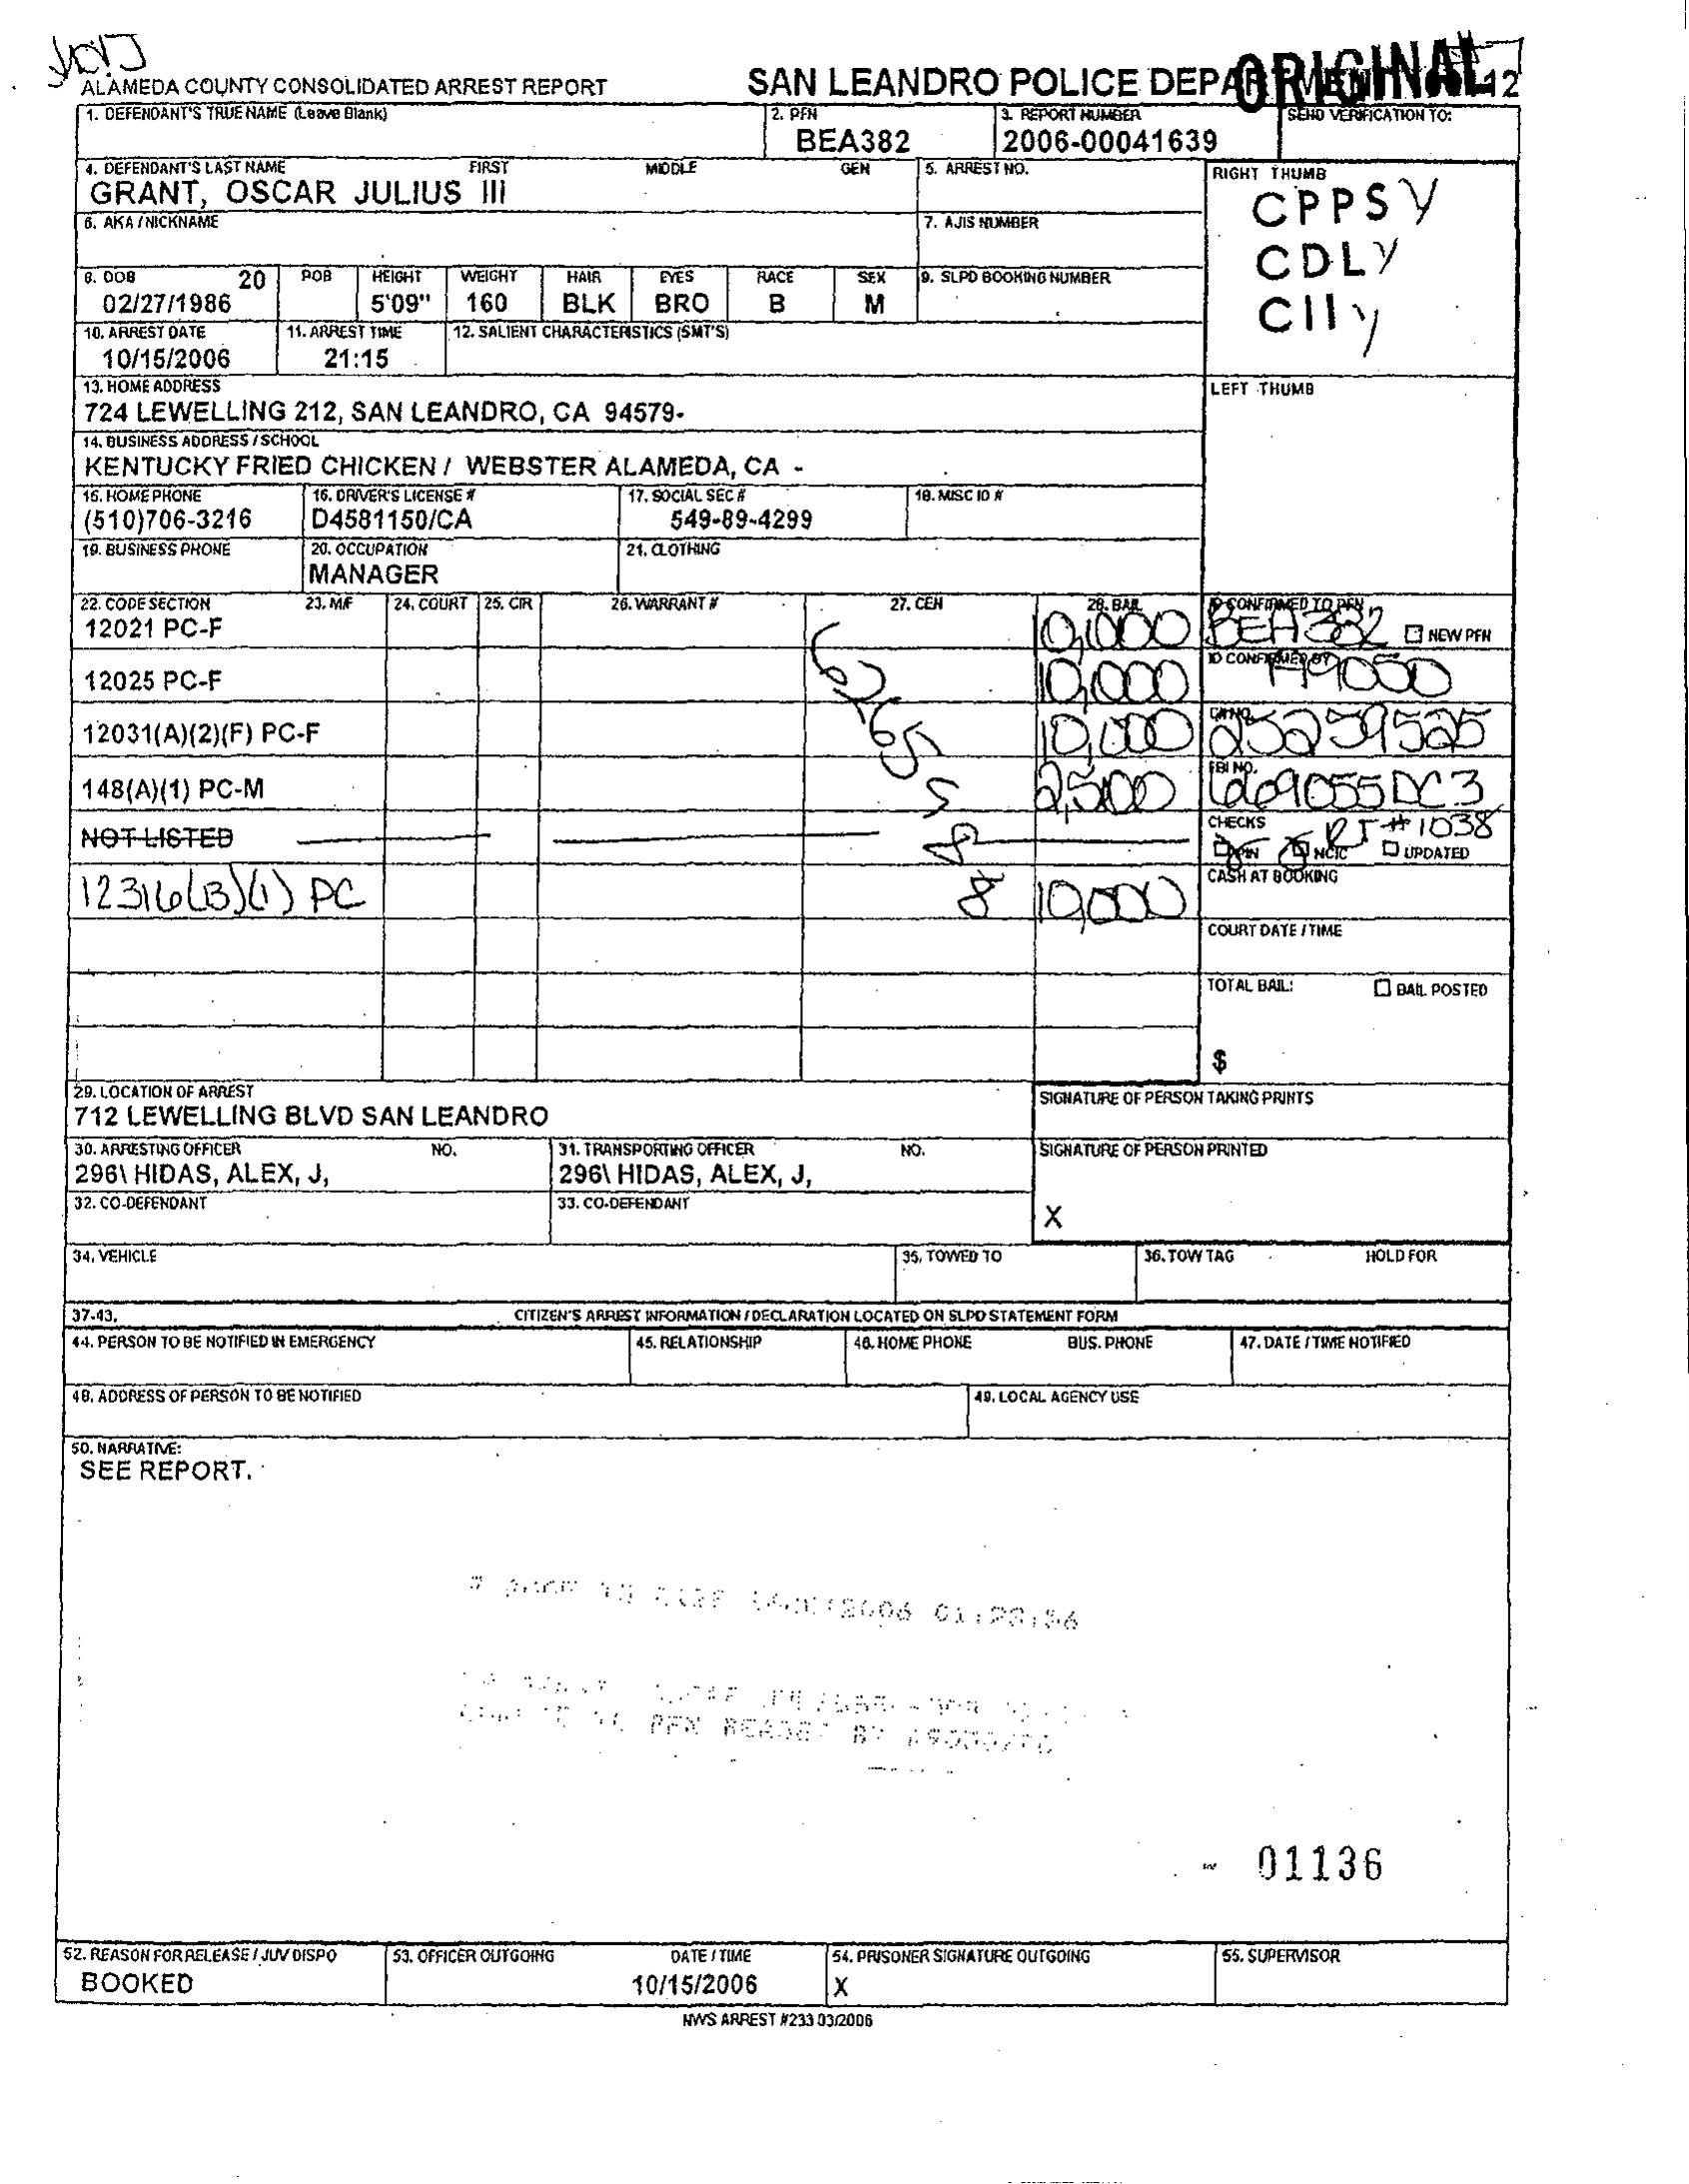 ALAMEDA COUNTY CONSOLIDATED ARREST REPORT
SAN LEANDRO POLICE DEPARTMENT
ORIGINAL
12
1. DEFENDANT'S TRUE NAME (Leave Blank)
2. PFN
BEA382
3. REPORT NUMBER
2006-00041639
SEND VERIFICATION TO:
4. DEFENDANT'S LAST NAME FIRST MIDDLE GEN
GRANT, OSCAR JULIUS III
5. ARREST NO.
RIGHT THUMB
CPPSY
CDLY
CIIY
6. AKA / NICKNAME
7. AJIS NUMBER
8. DOB 20
02/27/1986
POB
HEIGHT
5'09"
WEIGHT
160
HAIR
BLK
EYES
BRO
RACE
B
SEX
M
9. SLPD BOOKING NUMBER
10. ARREST DATE
10/15/2006
11. ARREST TIME
21:15
12. SALIENT CHARACTERISTICS (SMT'S)
13. HOME ADDRESS
724 LEWELLING 212, SAN LEANDRO, CA 94579-
LEFT THUMB
14. BUSINESS ADDRESS / SCHOOL
KENTUCKY FRIED CHICKEN / WEBSTER ALAMEDA, CA -
15. HOME PHONE
(510)706-3216
16. DRIVER'S LICENSE #
D4581150/CA
17. SOCIAL SEC #
549-89-4299
18. MISC ID #
19. BUSINESS PHONE
20. OCCUPATION
MANAGER
21. CLOTHING
22. CODE SECTION 23. M/F 24. COURT 25. CIR 26. WARRANT # 27. CEN 28. BAIL
12021 PC-F 10,000
12025 PC-F 10,000
12031(A)(2)(F) PC-F 10,000
148(A)(1) PC-M 2,500
NOT LISTED
12316(B)(1) PC 10,000
ID CONFIRMED TO PFN
BEA382
NEW PFN
ID CONFIRMED BY
A9050
CII NO.
25259525
FBI NO.
669055DC3
CHECKS
RJ #1038
PIN NCIC UPDATED
CASH AT BOOKING
COURT DATE / TIME
TOTAL BAIL: BAIL POSTED
$
29. LOCATION OF ARREST
712 LEWELLING BLVD SAN LEANDRO
SIGNATURE OF PERSON TAKING PRINTS
30. ARRESTING OFFICER NO.
296\ HIDAS, ALEX, J,
31. TRANSPORTING OFFICER NO.
296\ HIDAS, ALEX, J,
SIGNATURE OF PERSON PRINTED
X
32. CO-DEFENDANT
33. CO-DEFENDANT
34. VEHICLE
35. TOWED TO
36. TOW TAG HOLD FOR
37-43. CITIZEN'S ARREST INFORMATION / DECLARATION LOCATED ON SLPD STATEMENT FORM
44. PERSON TO BE NOTIFIED IN EMERGENCY
45. RELATIONSHIP
46. HOME PHONE BUS. PHONE
47. DATE / TIME NOTIFIED
48. ADDRESS OF PERSON TO BE NOTIFIED
49. LOCAL AGENCY USE
50. NARRATIVE:
SEE REPORT.
01136
52. REASON FOR RELEASE / JUV DISPO
BOOKED
53. OFFICER OUTGOING DATE / TIME
10/15/2006
54. PRISONER SIGNATURE OUTGOING
X
55. SUPERVISOR
NWS ARREST #233 03/2006